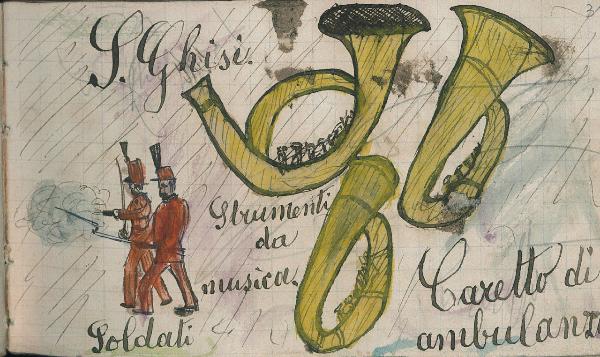 3
S. Ghisi.
Strumenti
da
musica.
Soldati
Caretto di
ambulanza